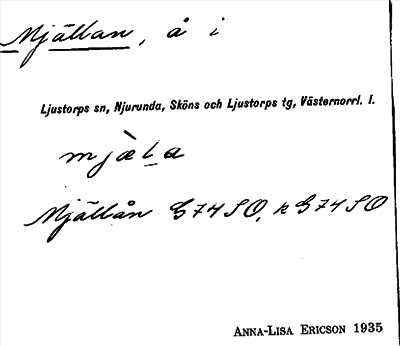 Mjällan, å i
Ljustorps sn, Njurunda, Sköns och Ljustorps tg, Västernorrl. l.
mjæ̀l̠a
Mjällån G74SO, k G74SO
ANNA-LISA ERICSON 1935